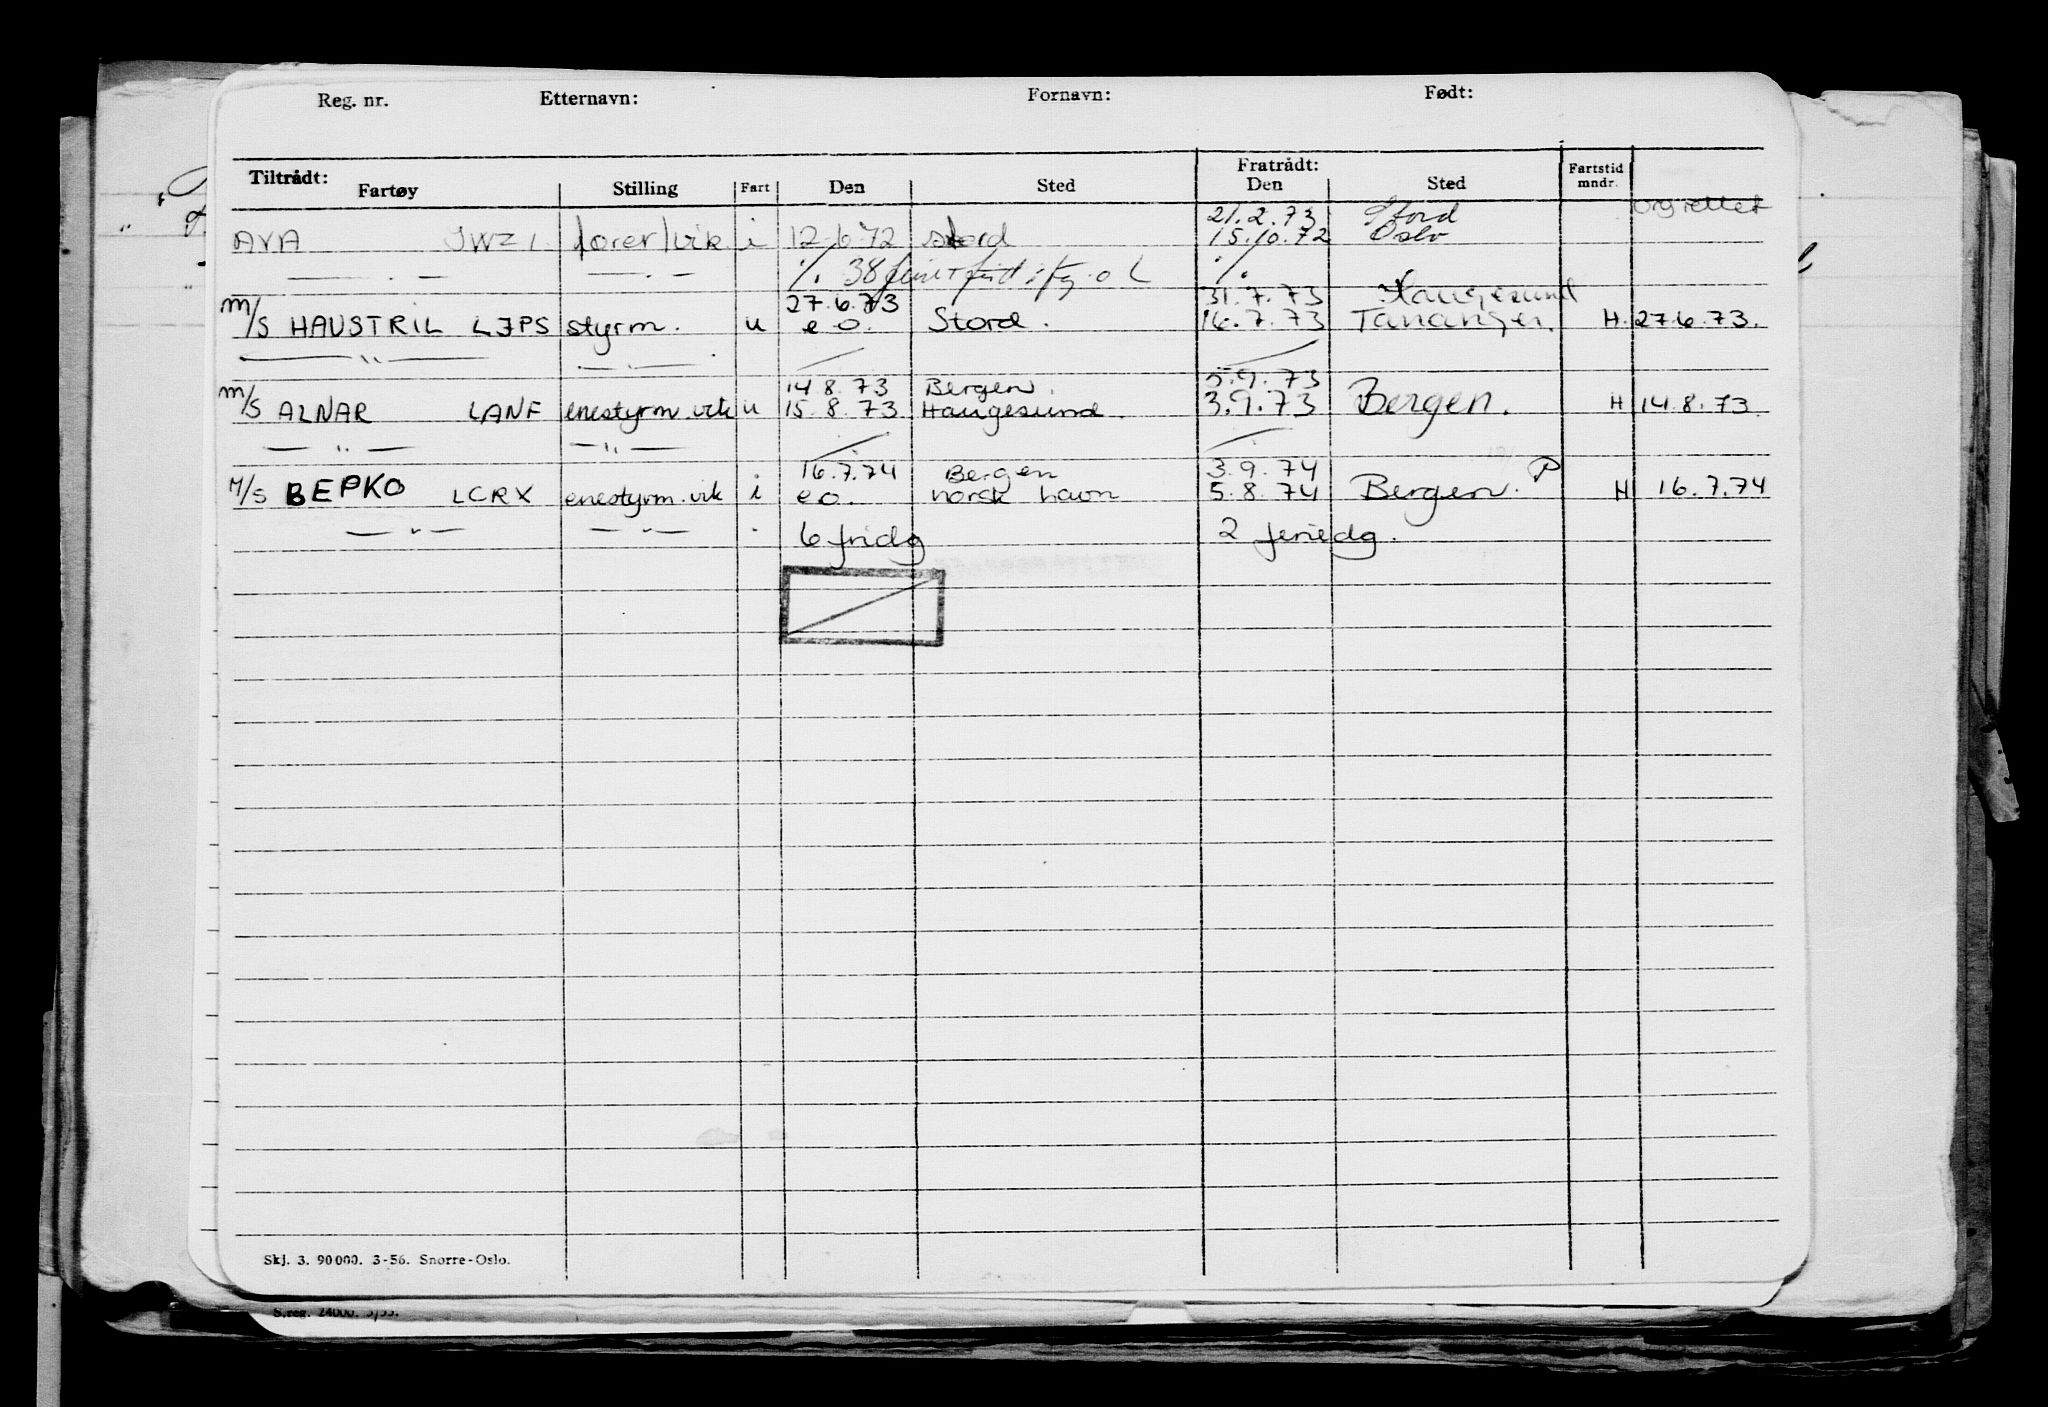 Reg. nr. Etternavn: Fornavn: Født:
Tiltrådt: Fratrådt: Fartstid mndr.
Fartøy Stilling Fart Den Sted Den Sted
21.2.73 Stord
AVA JWZI fører/vik i 12.6.72 Stord 15.10.72 Oslo
— . — — . — ./. 38 ./.
27.6.73 31.7.73 Haugesund
M/S HAUSTRIL LJPS styrm. u e o. Stord. 16.7.73 Tananger. H. 27.6.73.
— " — — " —
14.8.73 Bergen. 5.9.73
M/S ALNAR LANF enestyrm. vik u 15.8.73 Haugesund. 3.9.73 Bergen. H 14.8.73.
— " — — " —
16.7.74 Bergen 3.9.74
M/S BEPKO LCRX enestyrm. vik i e o. norsk havn 5.8.74 Bergen. P H 16.7.74
— " — — " — 6 fridg 2 feriedg.
Skj. 3. 90000. 3-56. Snorre-Oslo.
S.reg. 24000. 3/53.